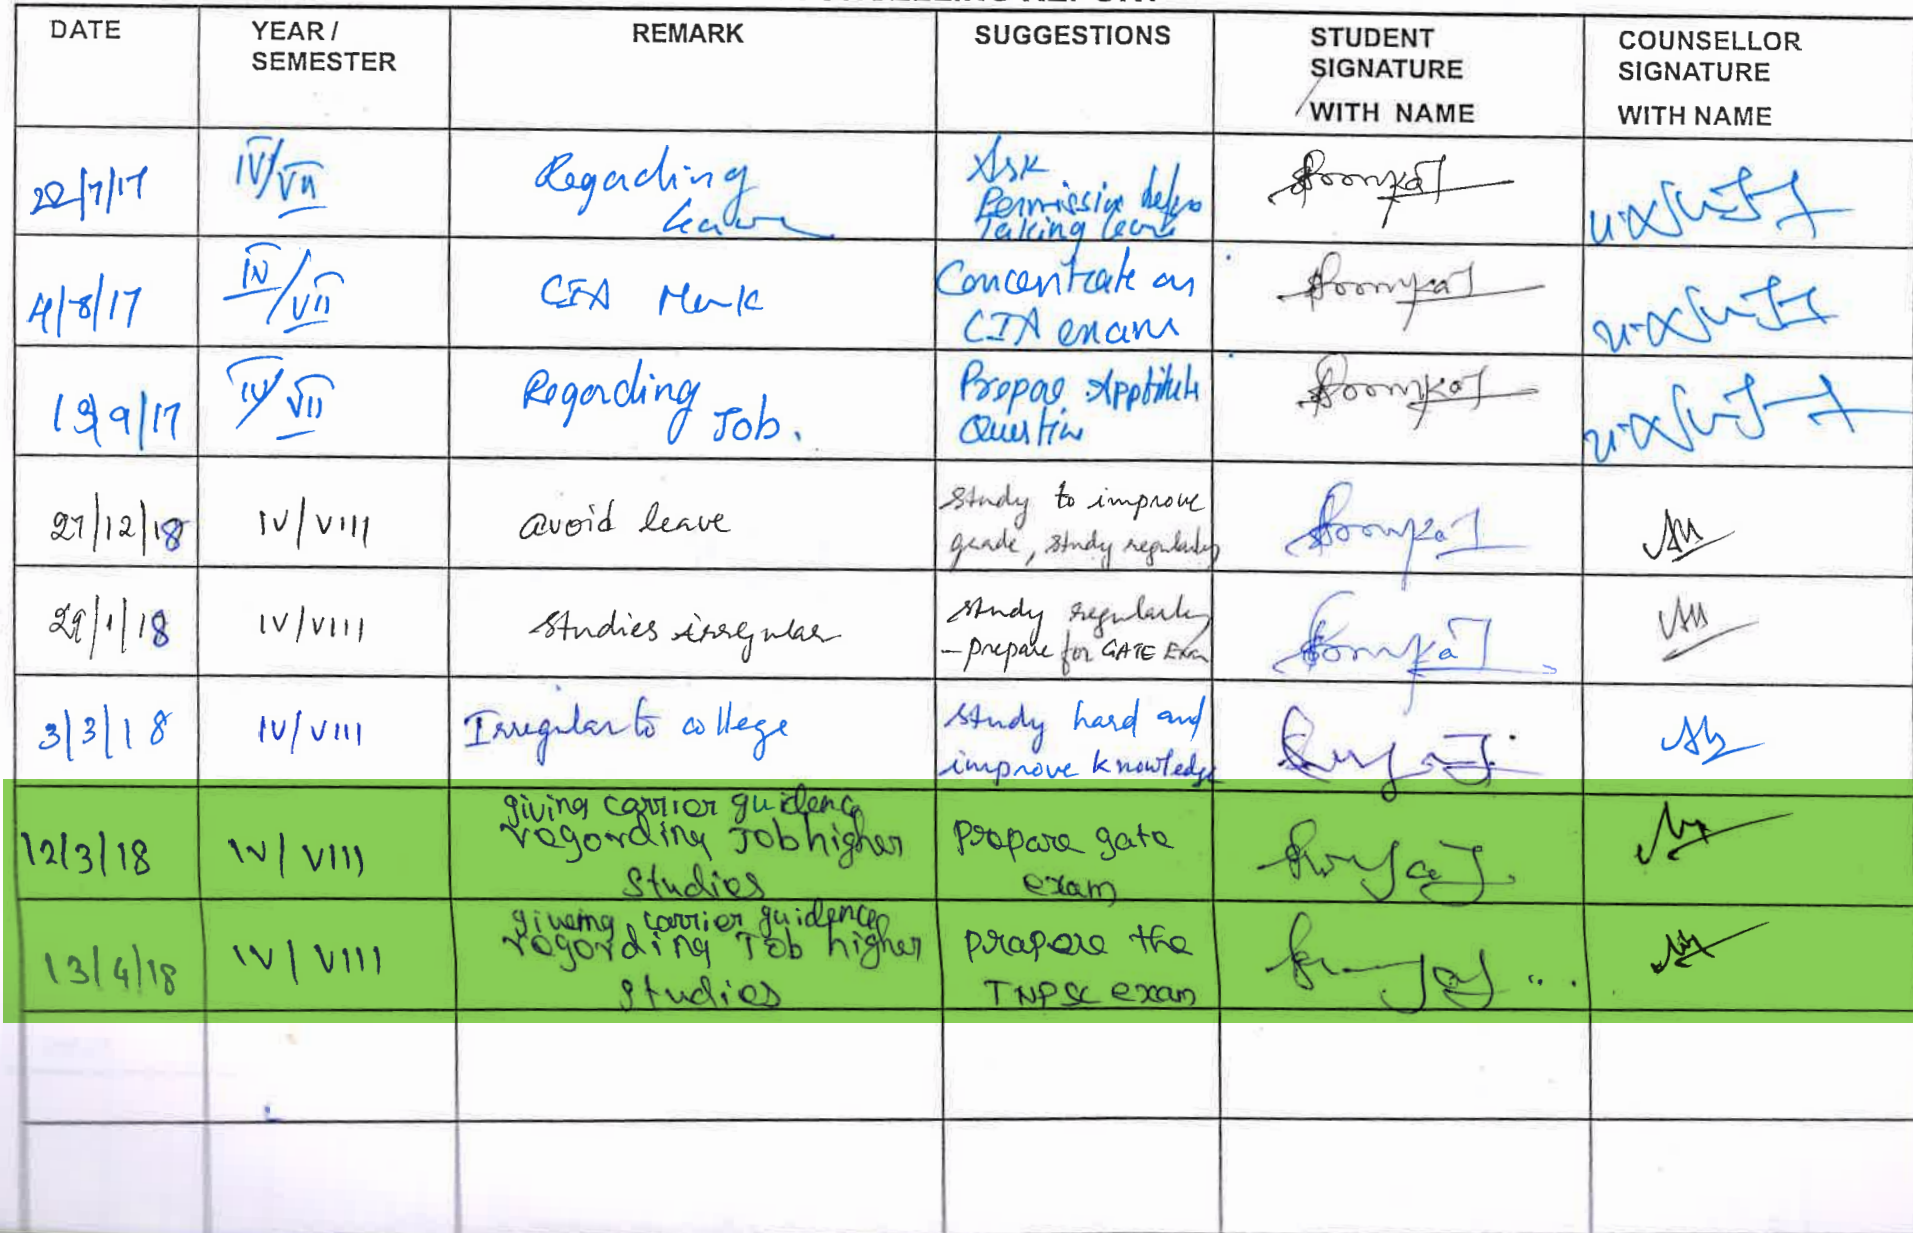 DATE
YEAR /
SEMESTER
REMARK
SUGGESTIONS
STUDENT
SIGNATURE
WITH NAME
COUNSELLOR
SIGNATURE
WITH NAME
22/7/17
IV/VII
Regarding
leave
Ask
Permission before
Taking leave
4/8/17
IV/VII
CIA Mark
Concentrate on
CIA exams
13/9/17
IV/VII
Regarding
Job.
Prepare Apptitute
Question
27/12/18
IV/VIII
avoid leave
study to improve
grade, study regularly
29/1/18
IV/VIII
studies irregular
study regularly
- prepare for GATE Exam
3/3/18
IV/VIII
Irregular to college
study hard and
improve knowledge
12/3/18
IV/VIII
giving carrier guidence
regording Job higher
studies
prepare gate
exam
13/4/18
IV/VIII
giveing carrier guidence
regording Job higher
studies
prapere the
TNPSC exam